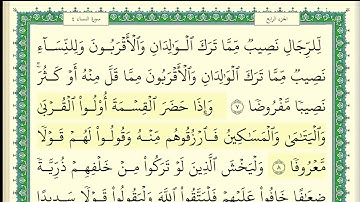 الجزء الرابع سورة النساء ٤
لِّلرِّجَالِ نَصِيبٌ مِّمَّا تَرَكَ الْوَالِدَانِ وَالْأَقْرَبُونَ وَلِلنِّسَاءِ
نَصِيبٌ مِّمَّا تَرَكَ الْوَالِدَانِ وَالْأَقْرَبُونَ مِمَّا قَلَّ مِنْهُ أَوْ كَثُرَ
نَصِيبًا مَّفْرُوضًا ٧ وَإِذَا حَضَرَ الْقِسْمَةَ أُوْلُوا الْقُرْبَى
وَالْيَتَامَى وَالْمَسَاكِينُ فَارْزُقُوهُم مِّنْهُ وَقُولُوا لَهُمْ قَوْلًا
مَّعْرُوفًا ٨ وَلْيَخْشَ الَّذِينَ لَوْ تَرَكُوا مِنْ خَلْفِهِمْ ذُرِّيَّةً
ضِعَافًا خَافُوا عَلَيْهِمْ فَلْيَتَّقُوا اللَّهَ وَلْيَقُولُوا قَوْلًا سَدِيدًا